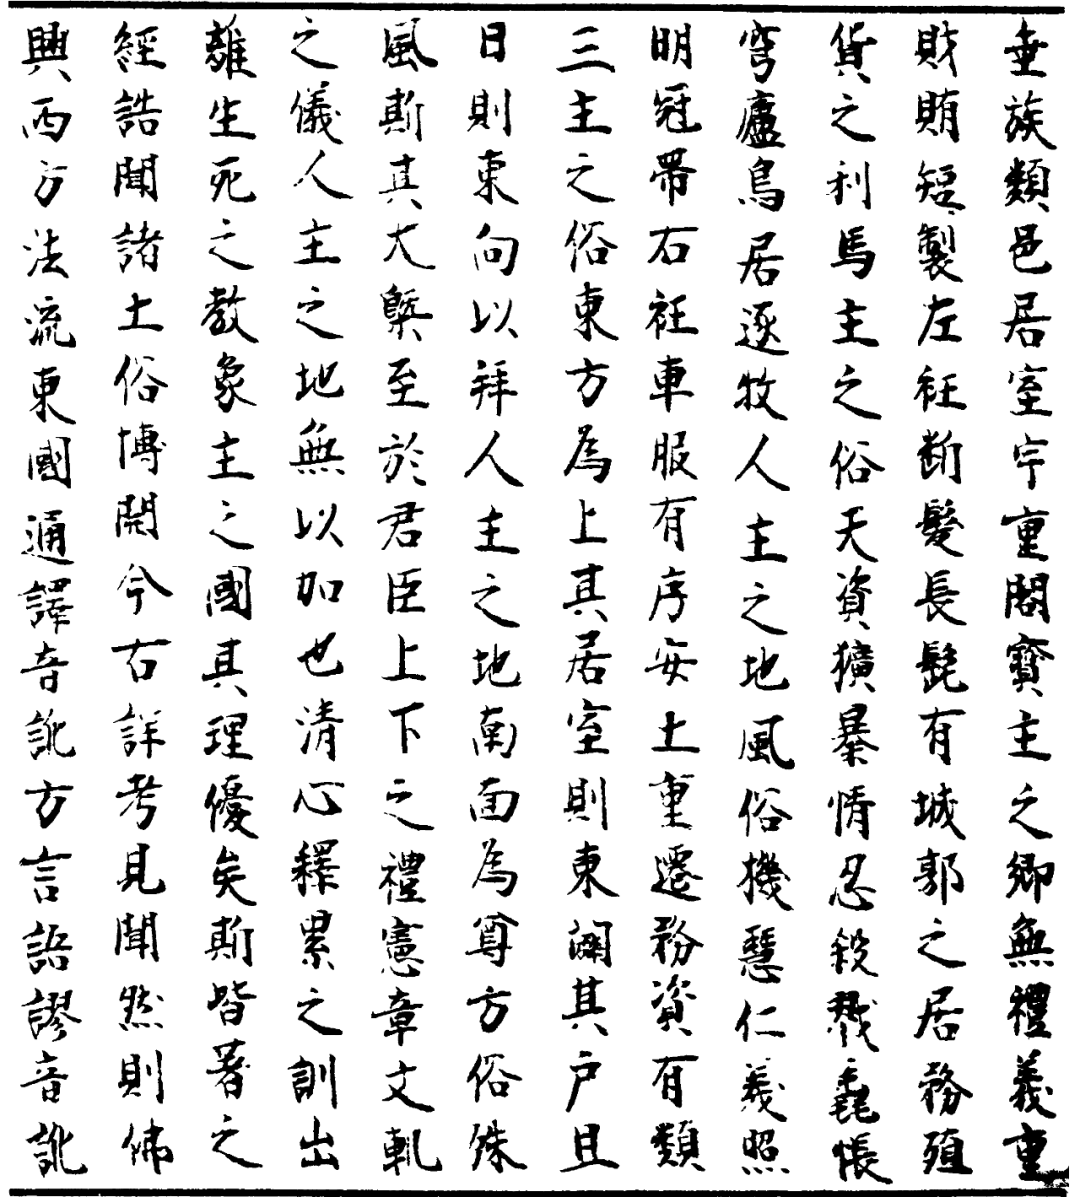 垂族類邑居室宇重閣寳主之鄉無禮義重
財賄短製左衽断髮長髭有城郭之居務殖
貨之利馬主之俗天資獷暴情忍殺戮毳帳
穹廬鳥居逐牧人主之地風俗機慧仁義照
明冠帶右衽車服有序安土重遷務資有類
三主之俗東方為上其居室則東闢其户旦
日則東向以拜人主之地南面為尊方俗殊
風斯其大槩至於君臣上下之禮憲章文軌
之儀人主之地無以加也清心釋累之訓出
離生死之教象主之國其理優矣斯皆著之
經誥聞諸土俗博關今古詳考見聞然則佛
興西方法流東國通譯音訛方言語謬音訛